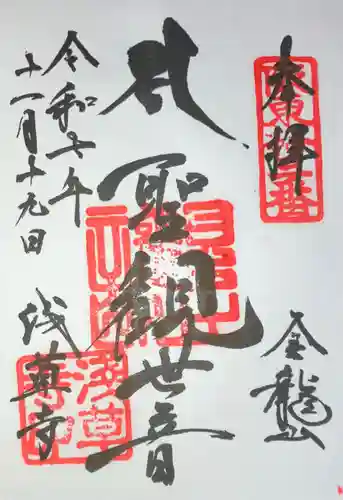 奉拝
坂東十三番
金龍山
聖観世音
令和七年
十一月十九日
浅草寺
浅草寺